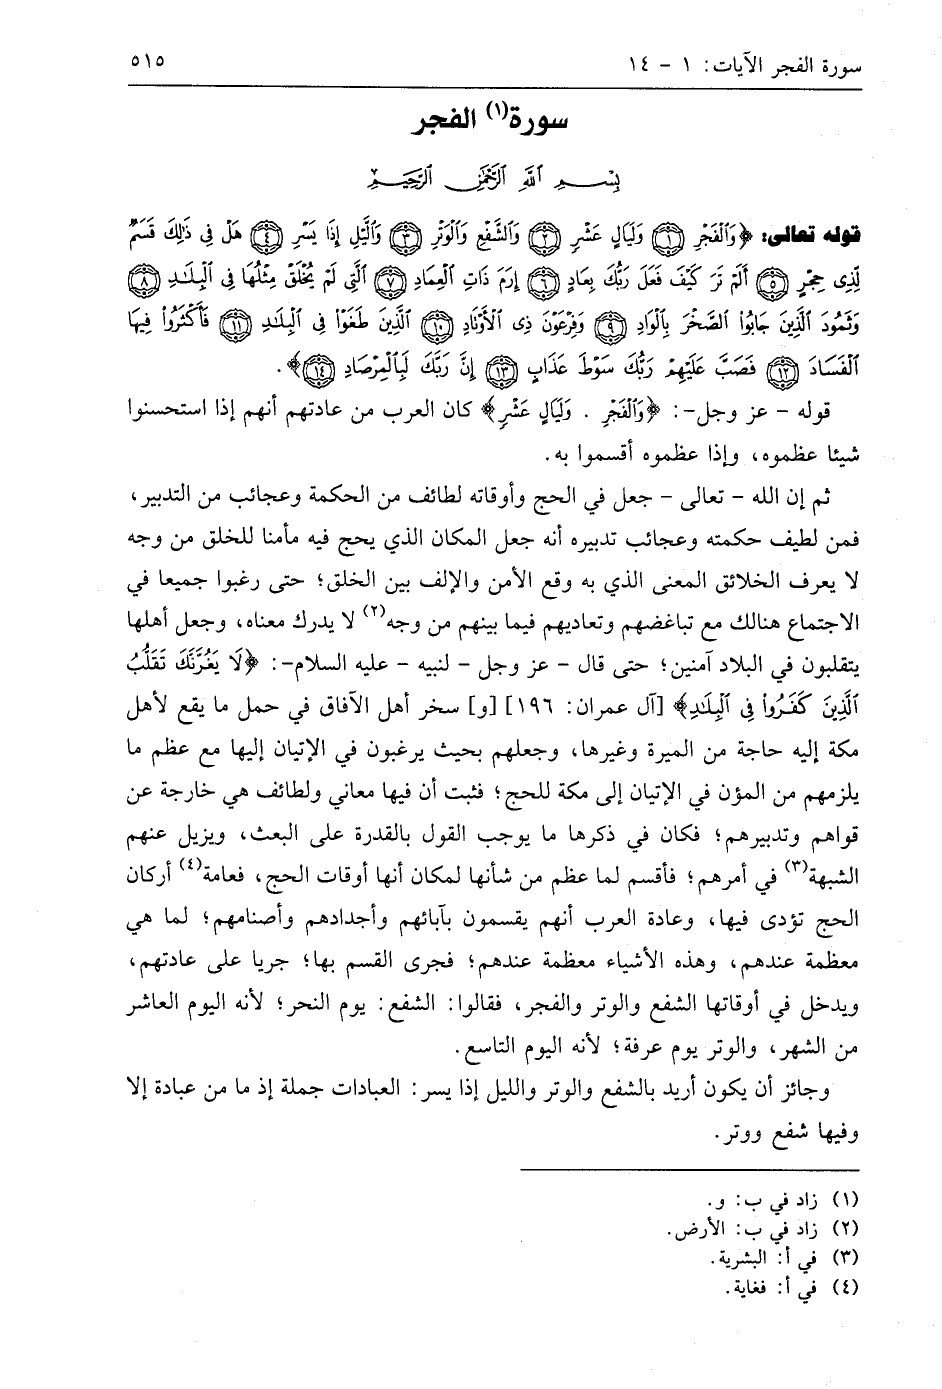 سورة الفجر الآيات: ١ - ١٤
٥١٥
سورة(١) الفجر
بسم الله الرحمن الرحيم
قوله تعالى: ﴿وَالْفَجْرِ ۝١ وَلَيَالٍ عَشْرٍ ۝٢ وَالشَّفْعِ وَالْوَتْرِ ۝٣ وَاللَّيْلِ إِذَا يَسْرِ ۝٤ هَلْ فِي ذَٰلِكَ قَسَمٌ
لِّذِي حِجْرٍ ۝٥ أَلَمْ تَرَ كَيْفَ فَعَلَ رَبُّكَ بِعَادٍ ۝٦ إِرَمَ ذَاتِ الْعِمَادِ ۝٧ الَّتِي لَمْ يُخْلَقْ مِثْلُهَا فِي الْبِلَادِ ۝٨
وَثَمُودَ الَّذِينَ جَابُوا الصَّخْرَ بِالْوَادِ ۝٩ وَفِرْعَوْنَ ذِي الْأَوْتَادِ ۝١٠ الَّذِينَ طَغَوْا فِي الْبِلَادِ ۝١١ فَأَكْثَرُوا فِيهَا
الْفَسَادَ ۝١٢ فَصَبَّ عَلَيْهِمْ رَبُّكَ سَوْطَ عَذَابٍ ۝١٣ إِنَّ رَبَّكَ لَبِالْمِرْصَادِ ۝١٤﴾.
قوله - عز وجل-: ﴿وَالْفَجْرِ . وَلَيَالٍ عَشْرٍ﴾ كان العرب من عادتهم أنهم إذا استحسنوا
شيئا عظموه، وإذا عظموه أقسموا به.
ثم إن الله - تعالى - جعل في الحج وأوقاته لطائف من الحكمة وعجائب من التدبير،
فمن لطيف حكمته وعجائب تدبيره أنه جعل المكان الذي يحج فيه مأمنا للخلق من وجه
لا يعرف الخلائق المعنى الذي به وقع الأمن والإلف بين الخلق؛ حتى رغبوا جميعا في
الاجتماع هنالك مع تباغضهم وتعاديهم فيما بينهم من وجه(٢) لا يدرك معناه، وجعل أهلها
يتقلبون في البلاد آمنين؛ حتى قال - عز وجل - لنبيه - عليه السلام-: ﴿لَا يَغُرَّنَّكَ تَقَلُّبُ
الَّذِينَ كَفَرُوا فِي الْبِلَادِ﴾ [آل عمران: ١٩٦] [و] سخر أهل الآفاق في حمل ما يقع لأهل
مكة إليه حاجة من الميرة وغيرها، وجعلهم بحيث يرغبون في الإتيان إليها مع عظم ما
يلزمهم من المؤن في الإتيان إلى مكة للحج؛ فثبت أن فيها معاني ولطائف هي خارجة عن
قواهم وتدبيرهم؛ فكان في ذكرها ما يوجب القول بالقدرة على البعث، ويزيل عنهم
الشبهة(٣) في أمرهم؛ فأقسم لما عظم من شأنها لمكان أنها أوقات الحج، فعامة(٤) أركان
الحج تؤدى فيها، وعادة العرب أنهم يقسمون بآبائهم وأجدادهم وأصنامهم؛ لما هي
معظمة عندهم، وهذه الأشياء معظمة عندهم؛ فجرى القسم بها؛ جريا على عادتهم،
ويدخل في أوقاتها الشفع والوتر والفجر، فقالوا: الشفع: يوم النحر؛ لأنه اليوم العاشر
من الشهر، والوتر يوم عرفة؛ لأنه اليوم التاسع.
وجائز أن يكون أريد بالشفع والوتر والليل إذا يسر: العبادات جملة إذ ما من عبادة إلا
وفيها شفع ووتر.
(١) زاد في ب: و.
(٢) زاد في ب: الأرض.
(٣) في أ: البشرية.
(٤) في أ: فغاية.